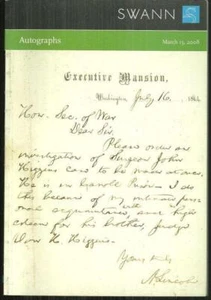 SWANN
Autographs
March 13, 2008
Executive Mansion,
Washington, July 16, 186
Hon. Sec. of War
Dear Sir.
Please order an
investigation of Surgeon John
Higgins case to be made at once.
He is in Prison I do
this because of my intimate
personal acquaintance and high
esteem for his brother, Judge
Van H. Higgins.
Yours truly
A. Lincoln